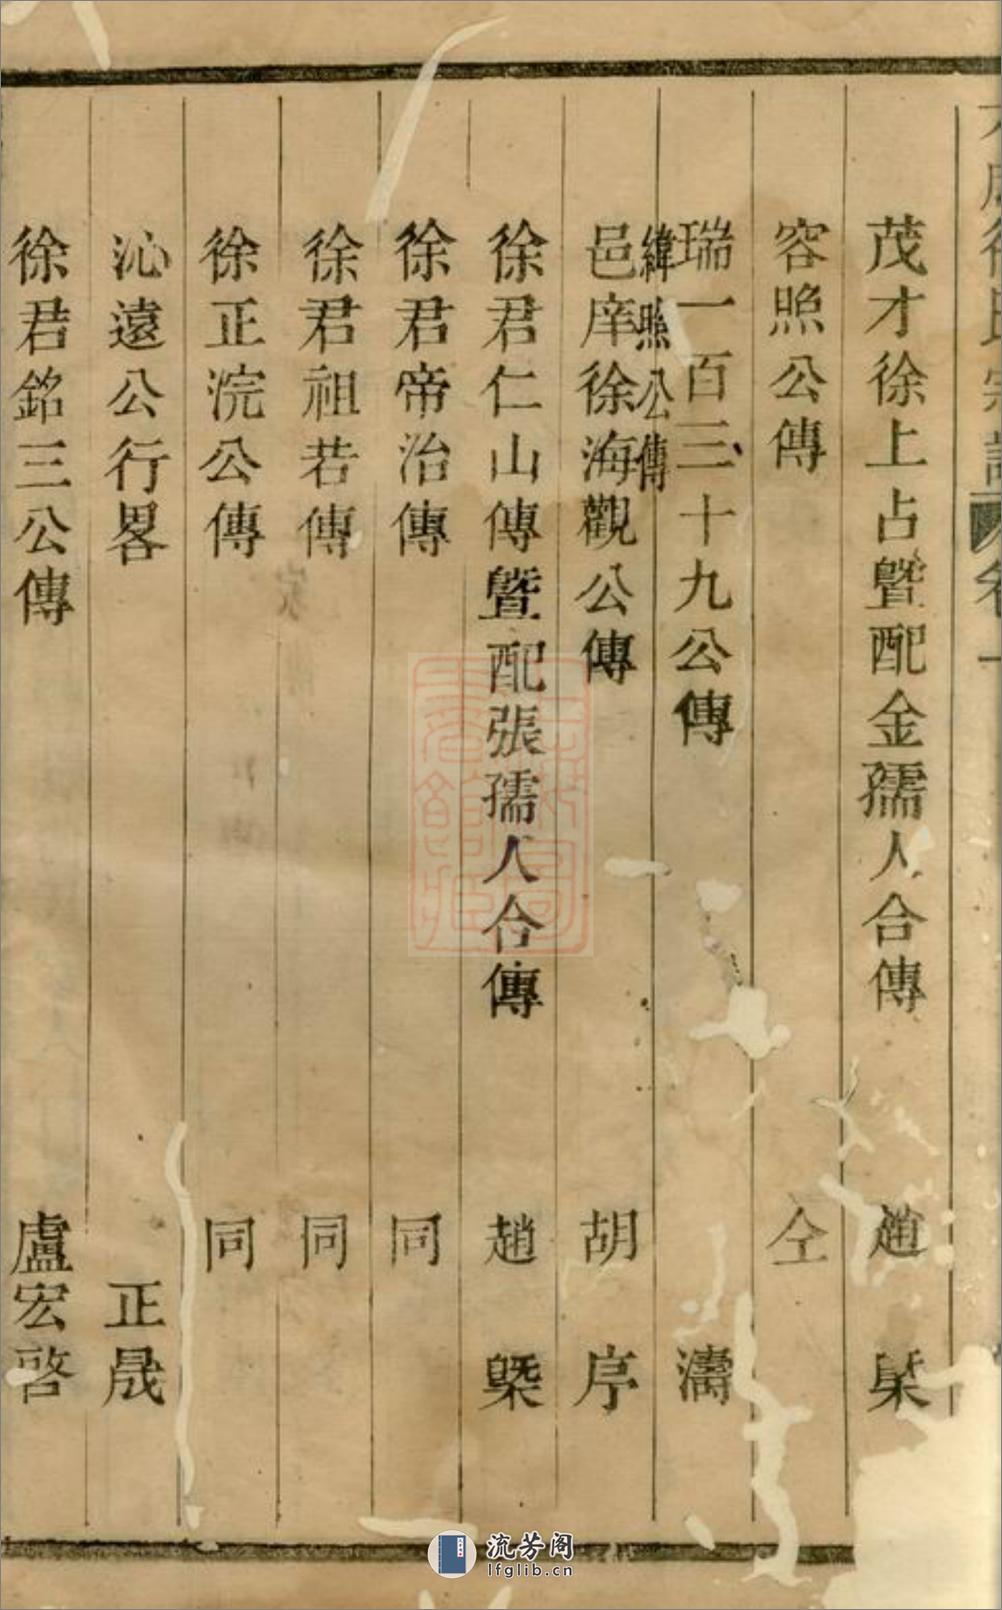 茂才徐上占曁配金孺人合傳 趙 㮣
容照公傳 仝
瑞一百三十九公傳 濤
緯照公傳
邑庠徐海觀公傳 胡 序
徐君仁山傳曁配張孺人合傳 趙 㮣
徐君帝治傳 同
徐君祖若傳 同
徐正浣公傳 同
沁遠公行畧 正晟
徐君銘三公傳 盧宏啓
流芳阁
lfglib.cn